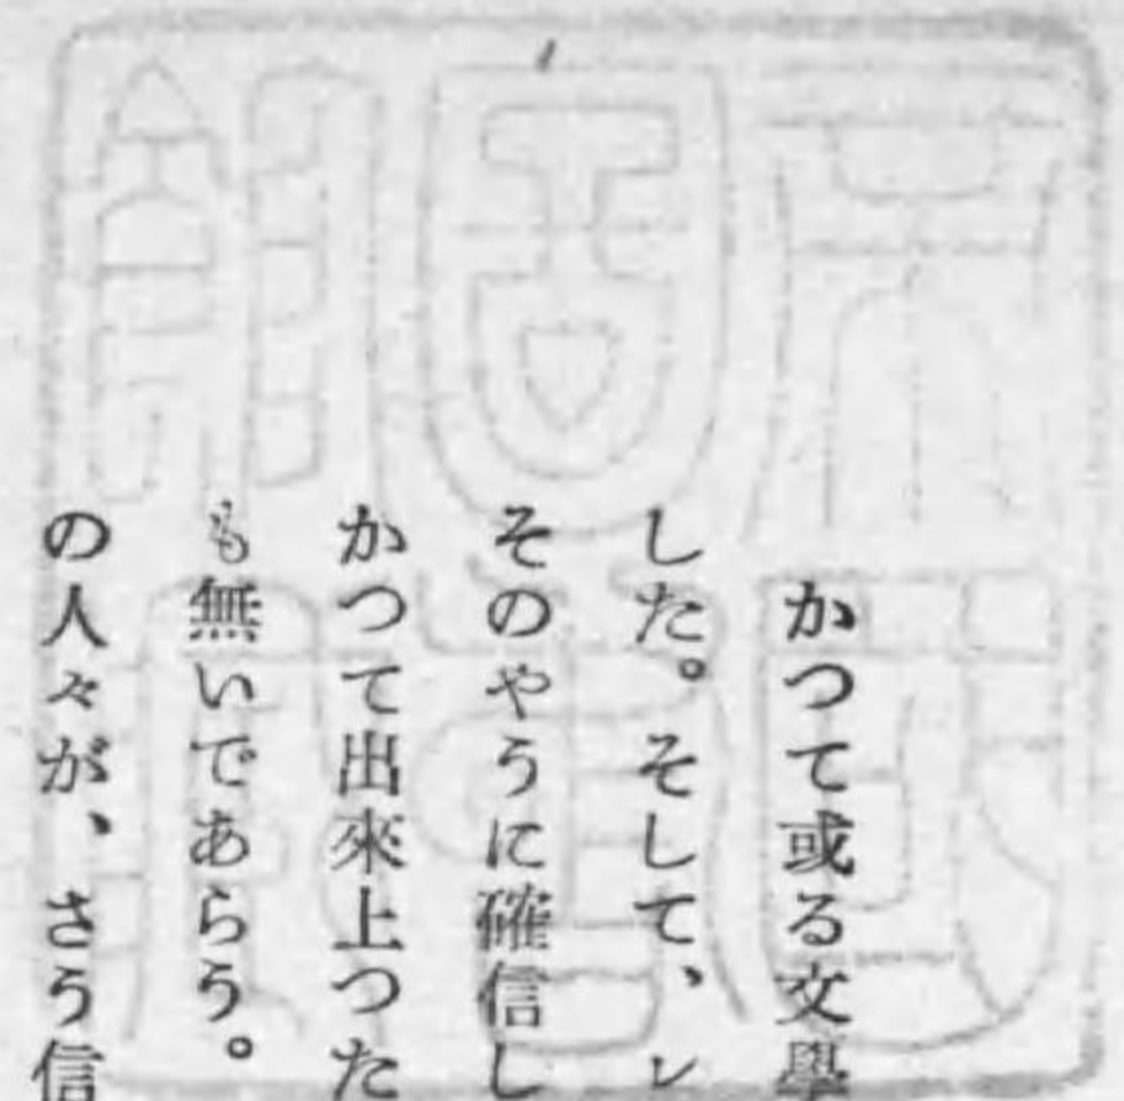 かつて或る文學
した。そして、レ
そのやうに確信し
かつて出來上つた
も無いであらう。
の人々が、さう信